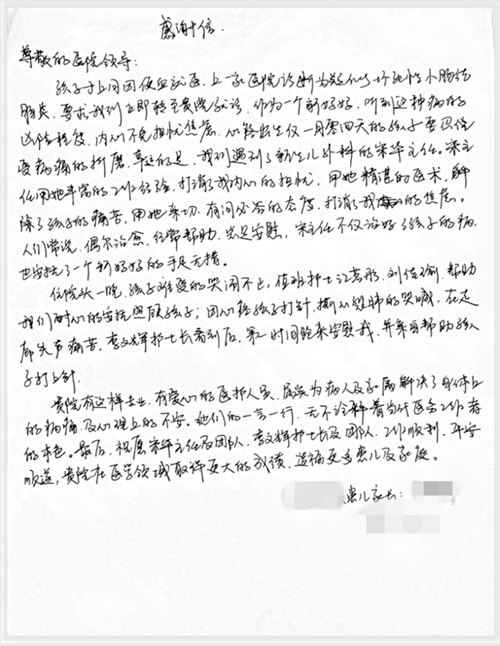 感谢信
尊敬的医院领导：
孩子于上周因便血就医，上一家医院诊断为疑似坏死性小肠结
肠炎，要求我们立即转至贵院就诊，作为一个新妈妈，听到这种病的
凶险程度，内心不免担忧焦虑，心疼出生仅一月零四天的孩子要忍
受病痛的折磨，幸运的是，我们遇到了新生儿外科的宋华主任。宋主
任用她丰富的工作经验，打消了我内心的担忧，用她精湛的医术，解
除了孩子的痛苦，用她亲切、有问必答的态度，打消了我的焦虑。
人们常说，偶尔治愈，经常帮助，总是安慰，宋主任不仅治好了孩子的病，
也安抚了一个新妈妈的手足无措。
住院头一晚，孩子难受的哭闹不止，值班护士江若彤、刘倍瑜，帮助
我们耐心的安抚照顾孩子；因心疼孩子打针，撕心裂肺的哭喊，在走
廊失声痛苦，李文辉护士长看到后，第一时间跑来安慰我，并亲自帮助孩
子打上针。
贵院有这样专业、有爱心的医护人员，是为病人及家属解决了身体上
的病痛及心理上的不安。她们的一言一行，无不诠释着医务工作者
的本色。最后，祝愿宋华主任及团队，李文辉护士长及团队，工作顺利，平安
顺遂，贵院在医学领域取得更大的成绩，造福更多患儿及家庭。
患儿家长：